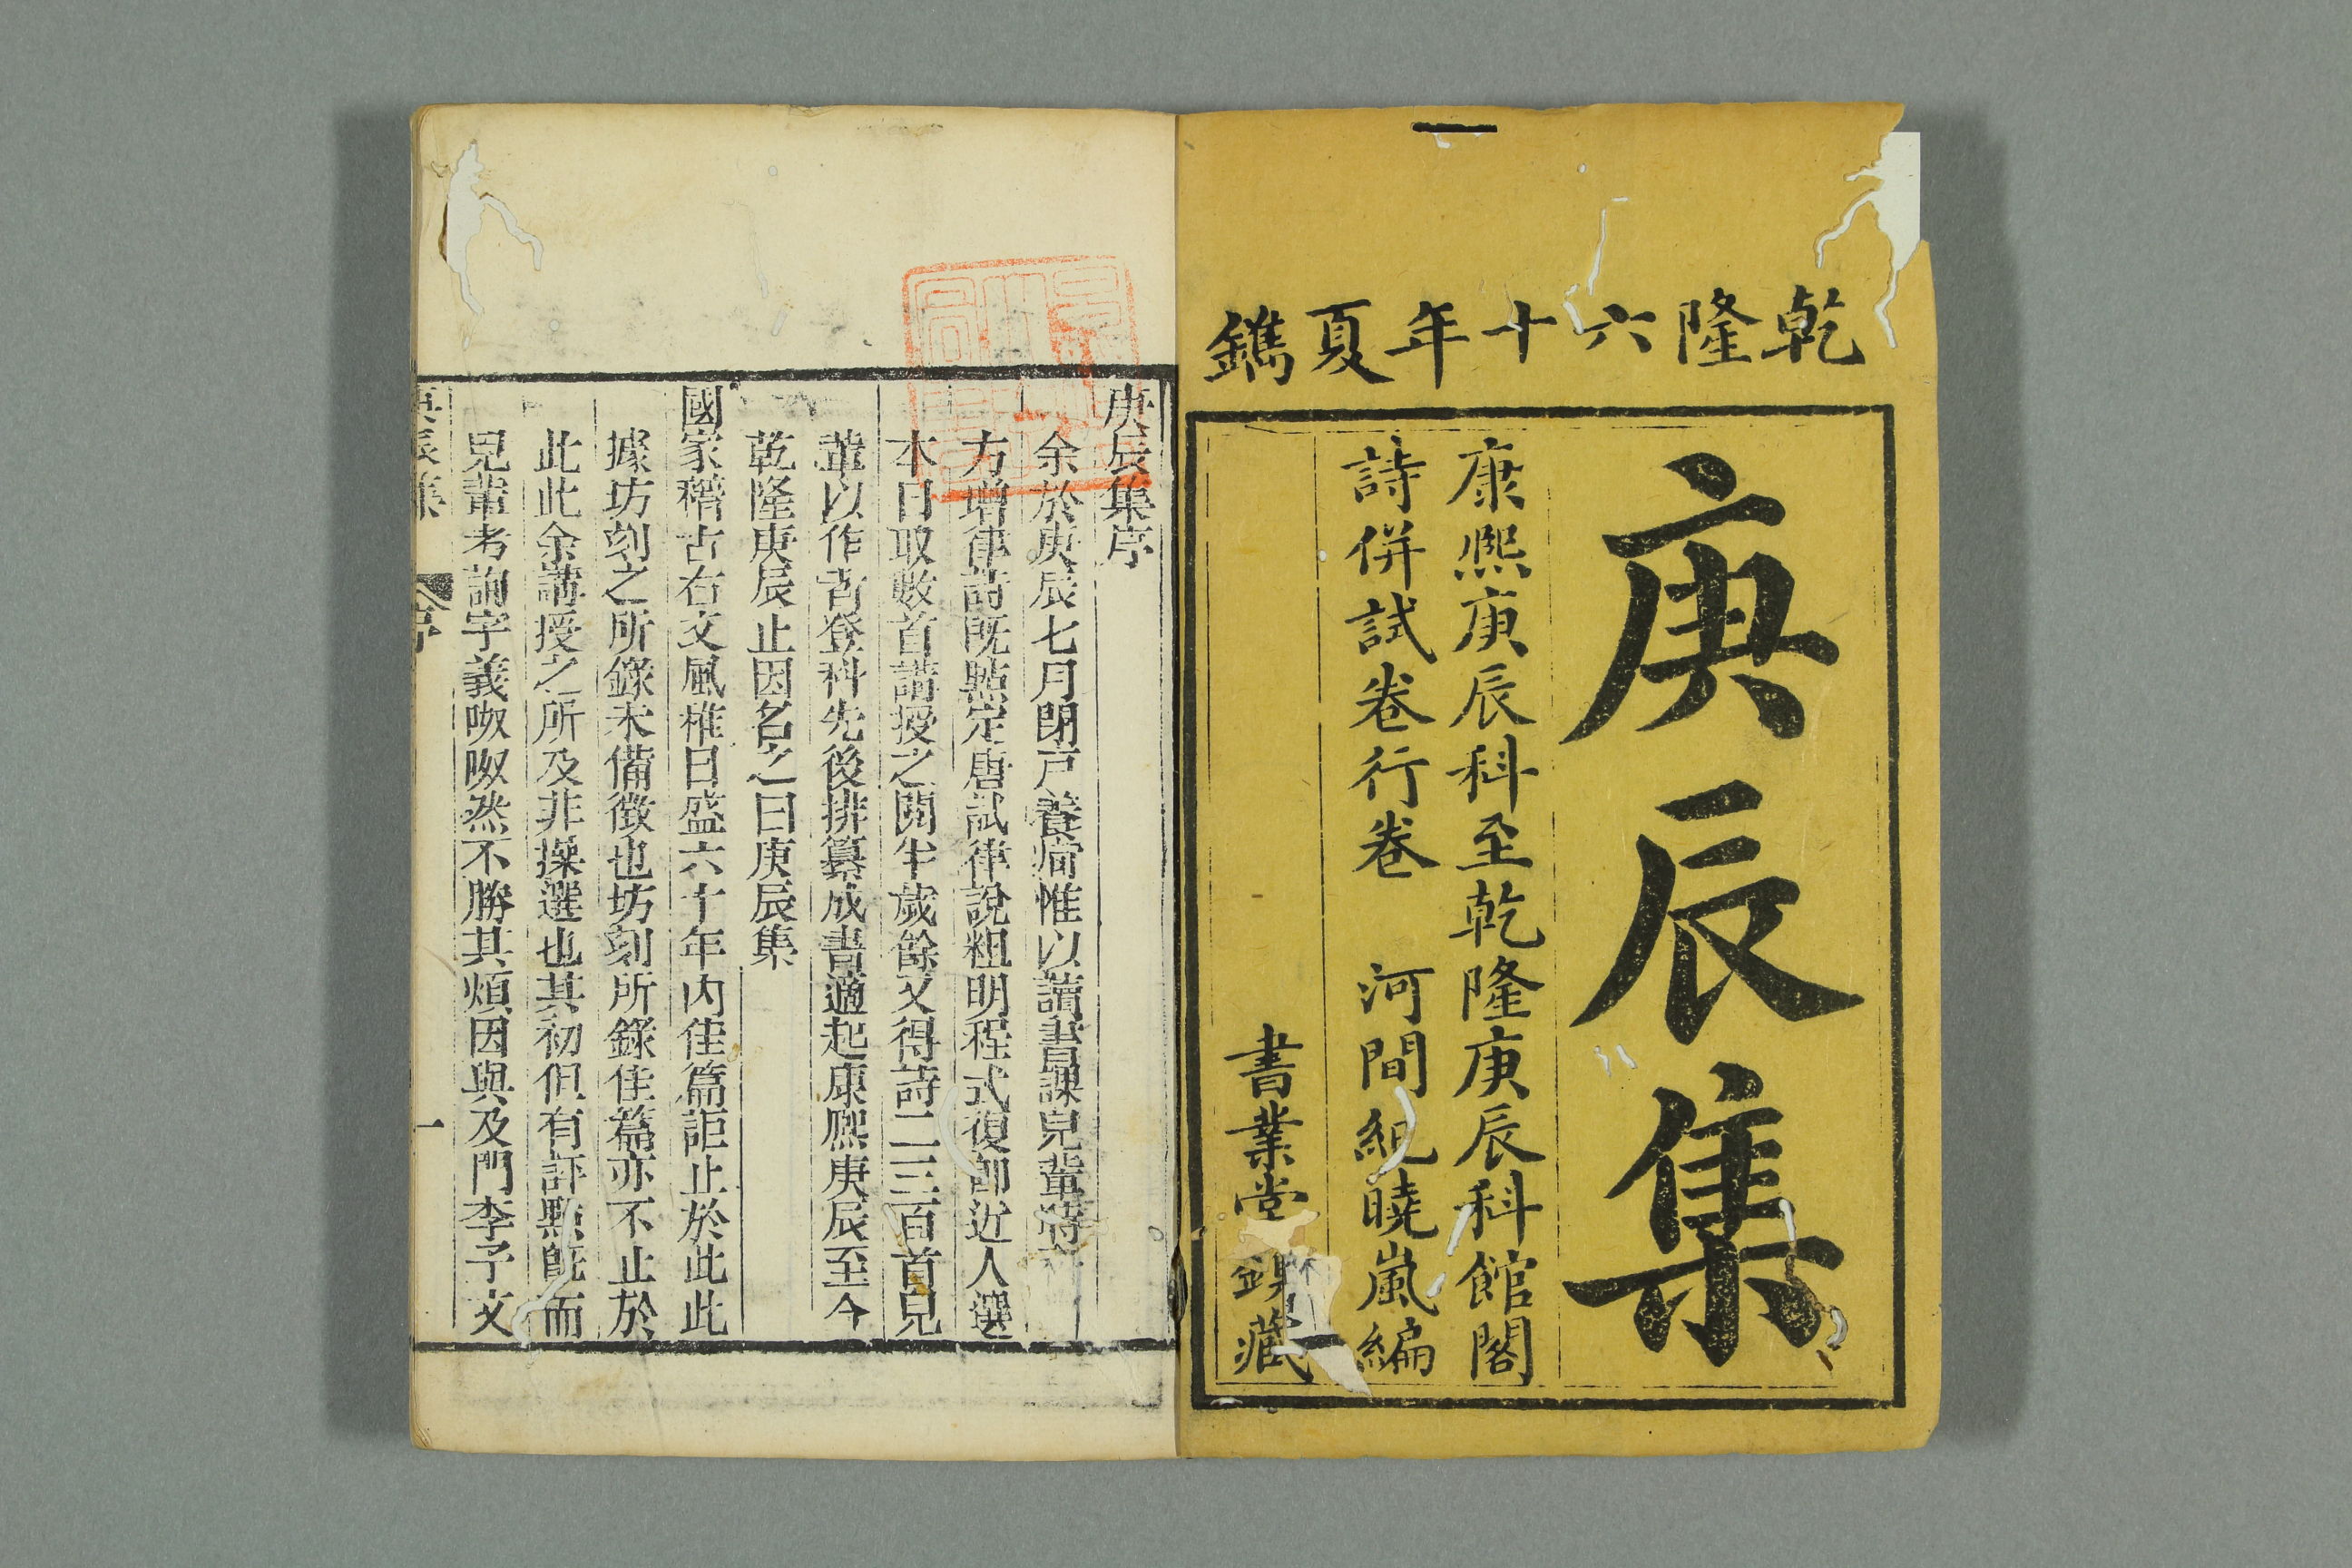 乾隆六十年夏鐫
庚辰集
康熙庚辰科至乾隆庚辰科館閣
詩併試卷行卷 河間紀曉嵐編
書業堂鐫藏
庚辰集序
余於庚辰七月閉戸養疴惟以讀書課兒輩時
方增律詩既點定唐試律說粗明程式復即近人選
本日取數首講授之閱半歲餘又得詩二三百首兒
輩以作者登科先後排纂成書適起康熙庚辰至今
乾隆庚辰止因名之曰庚辰集
國家稽古右文風雅日盛六十年内佳篇詎止於此此
據坊刻之所錄未備徴也坊刻所錄佳篇亦不止於
此此余講授之所及非操選也其初但有評點既而
兒輩考詢字義呶呶然不勝其煩因與及門李予文
庚辰集 序 一